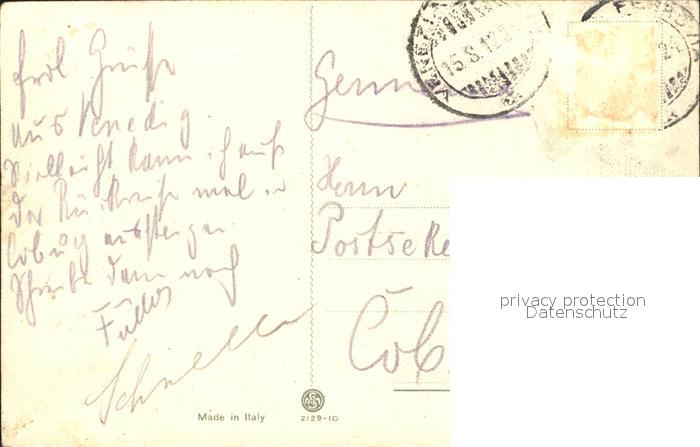 frdl. Grüße
aus Venedig.
Vielleicht kann ich auf
der Rückreise mal in
Coburg aussteigen.
Schreibe dann noch
Schnell
VENEZIA
15.8.12
FERROVIA
Germ
Herrn
Postsekre
Cob
privacy protection
Datenschutz
Made in Italy
2129-10